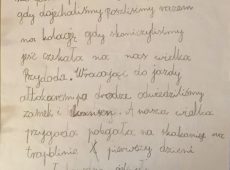 gdy dojechaliśmy poszliśmy razem
na kolację, gdy skończyliśmy
już czekała na nas wielka
Przygoda. Wracając do jazdy
autokarem po drodze odwiedziliśmy
zamek i A nasza wielka
przygoda polegała na skakaniu na
trapolinie X pierwszy dzień